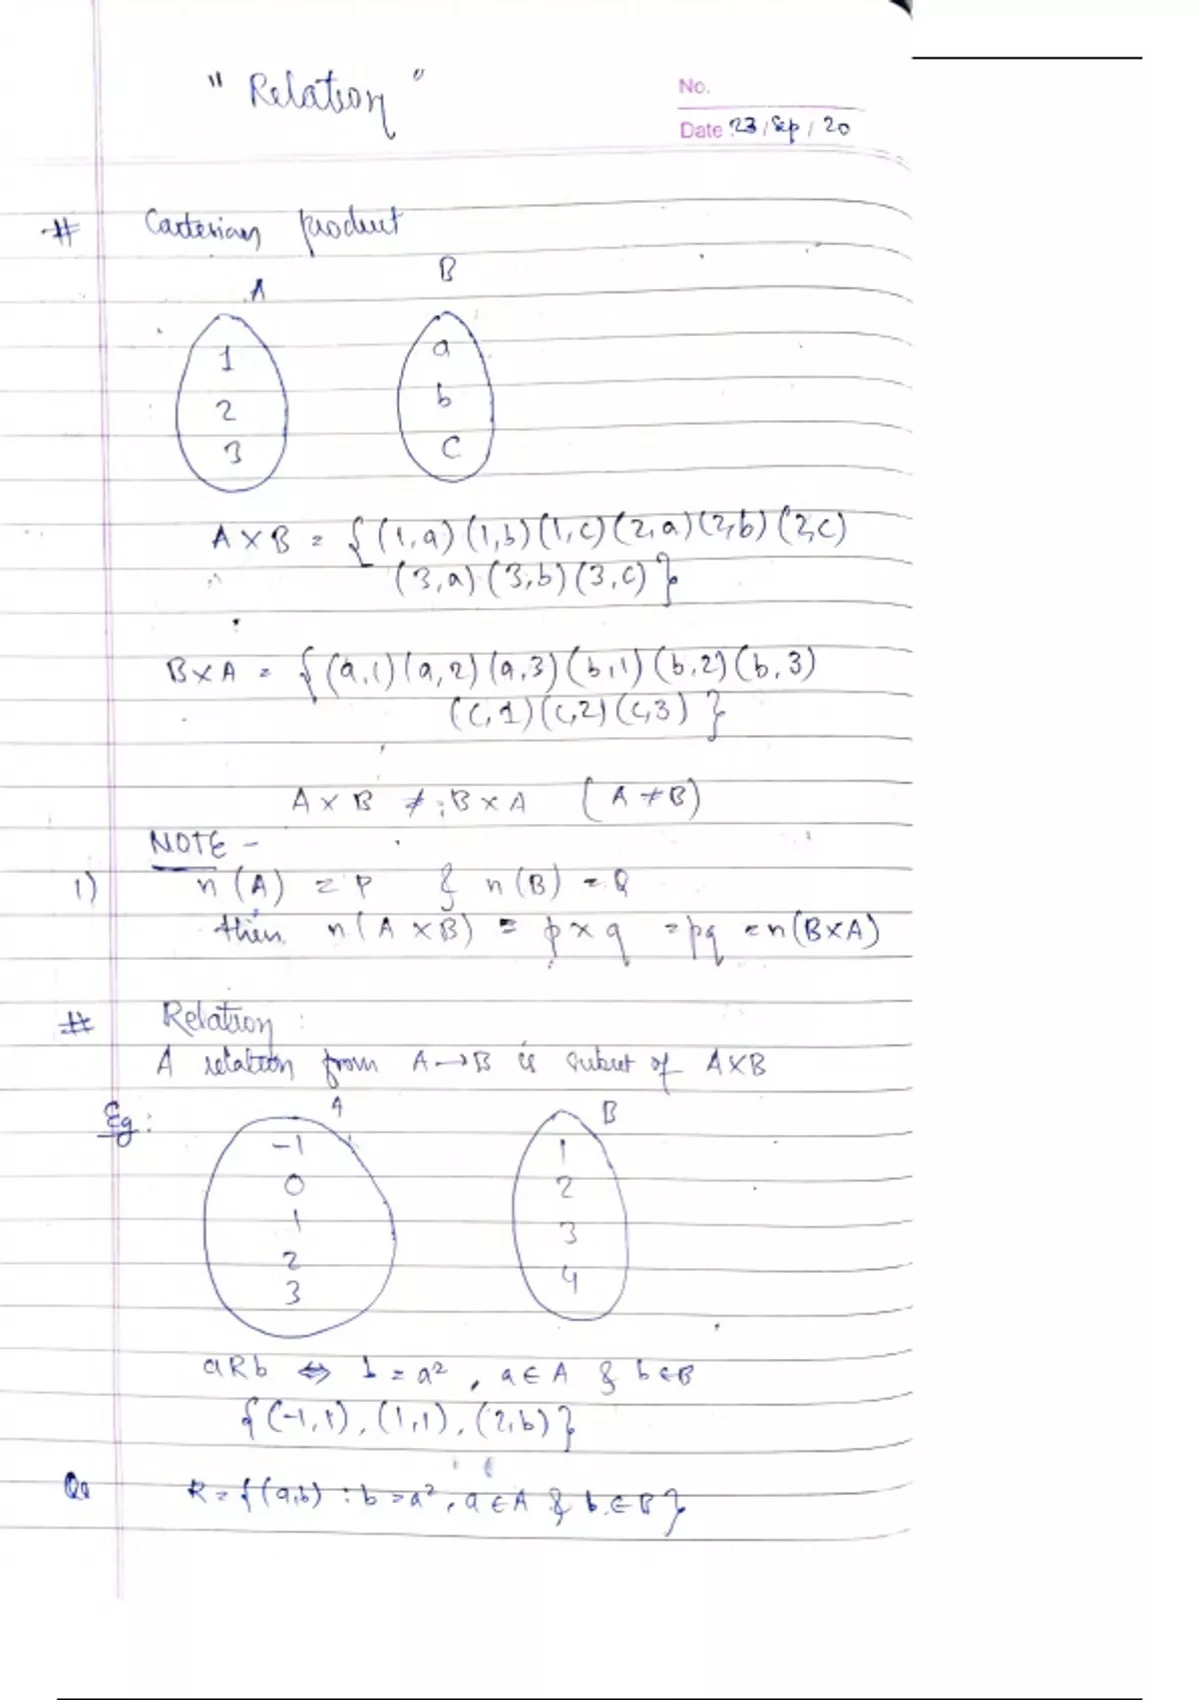 " Relation "
No.
Date 23 / Sep / 20
# Cartesian product
A B
1 a
2 b
3 c
A × B = { (1,a) (1,b) (1,c) (2,a) (2,b) (2,c)
(3,a) (3,b) (3,c) }
B × A = { (a,1) (a,2) (a,3) (b,1) (b,2) (b,3)
(c,1) (c,2) (c,3) }
A × B ≠ B × A (A ≠ B)
NOTE -
1) n(A) = P & n(B) = Q
then n(A × B) = p × q = pq = n(B×A)
# Relation :
A relation from A → B is subset of A×B
Eg :
A B
-1 1
0 2
1 3
2 4
3
aRb ⇔ b = a², a ∈ A & b ∈ B
{ (-1,1), (1,1), (2,b) }
Or R = { (a,b) : b = a², a ∈ A & b ∈ B }